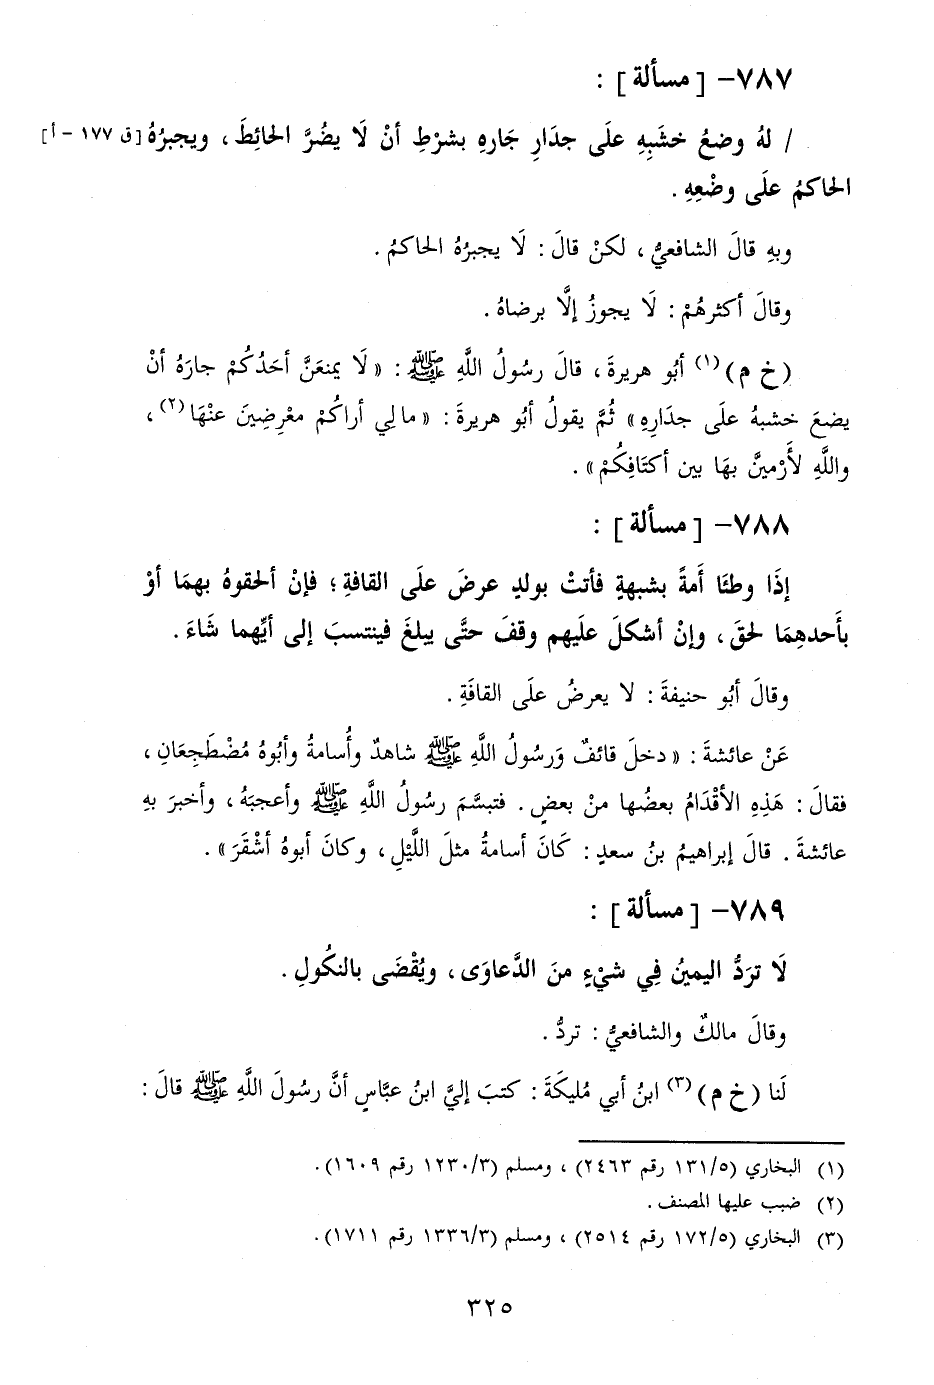 ٧٨٧- [ مسألة ] :
/ لهُ وضعُ خشَبِهِ علَى جدَارِ جَارهِ بشرْطِ أنْ لَا يضُرَّ الحَائِطَ ، ويجبرُهُ [ ق ١٧٧ - أ ]
الحاكمُ علَى وضْعِهِ .
وبهِ قالَ الشافعيُّ ، لكنْ قالَ : لَا يجبرُهُ الحاكمُ .
وقالَ أكثرهُمْ : لَا يجوزُ إلَّا برضاهُ .
( خ م ) (١) أبُو هريرةَ ، قالَ رسُولُ اللَّهِ ﷺ : « لَا يمنعَنَّ أحَدُكُمْ جارَهُ أنْ
يضعَ خشبهُ علَى جدَارِهِ » ثُمَّ يقولُ أبُو هريرةَ : « ما لِي أراكُمْ معْرِضِينَ عنْهَا (٢) ،
واللَّهِ لأَرْمينَّ بهَا بين أكتَافِكُمْ » .
٧٨٨- [ مسألة ] :
إذَا وطئَا أَمةً بشبهةٍ فأتتْ بولدٍ عرضَ علَى القافةِ ؛ فإنْ ألحقوهُ بهمَا أوْ
بأَحدهِمَا لحقَ ، وإنْ أشكلَ علَيهم وقفَ حتَّى يبلغَ فينتسبَ إلى أيِّهما شَاءَ .
وقالَ أبُو حنيفةَ : لا يعرضُ علَى القافَةِ .
عَنْ عائشةَ : « دخلَ قائفٌ وَرسُولُ اللَّهِ ﷺ شاهدٌ وأُسامةُ وأبُوهُ مُضْطَجِعَانِ ،
فقالَ : هَذِهِ الأقْدَامُ بعضُها منْ بعضٍ . فتبسَّمَ رسُولُ اللَّهِ ﷺ وأعجبَهُ ، وأخبرَ بهِ
عائشةَ . قالَ إبراهيمُ بنُ سعدٍ : كَانَ أسامةُ مثلَ اللَّيْلِ ، وكانَ أبوهُ أشْقَرَ » .
٧٨٩- [ مسألة ] :
لَا ترَدُّ اليمينُ فِي شيْءٍ منَ الدَّعاوَى ، ويُقْضَى بالنكُولِ .
وقالَ مالكٌ والشافعيُّ : تردُّ .
لَنا ( خ م ) (٣) ابنُ أبي مُليكَةَ : كتبَ إليَّ ابنُ عبَّاسٍ أنَّ رسُولَ اللَّهِ ﷺ قالَ :
(١) البخاري (١٣١/٥ رقم ٢٤٦٣) ، ومسلم (١٢٣٠/٣ رقم ١٦٠٩).
(٢) ضبب عليها المصنف .
(٣) البخاري (١٧٢/٥ رقم ٢٥١٤) ، ومسلم (١٣٣٦/٣ رقم ١٧١١).
٣٢٥